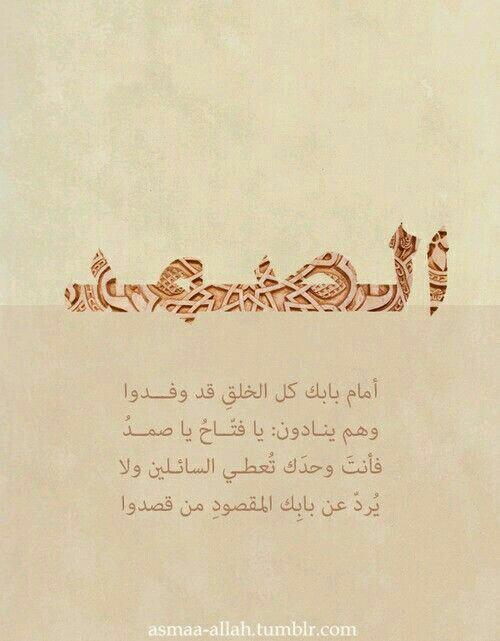 الصمد
أمام بابك كل الخلقِ قد وفـــدوا
وهم ينـادون: يا فتّـاحُ يا صمـدُ
فأنتَ وحدَك تُعطـي السائـلين ولا
يُردّ عن بابِك المقصودِ من قصدوا
asmaa-allah.tumblr.com